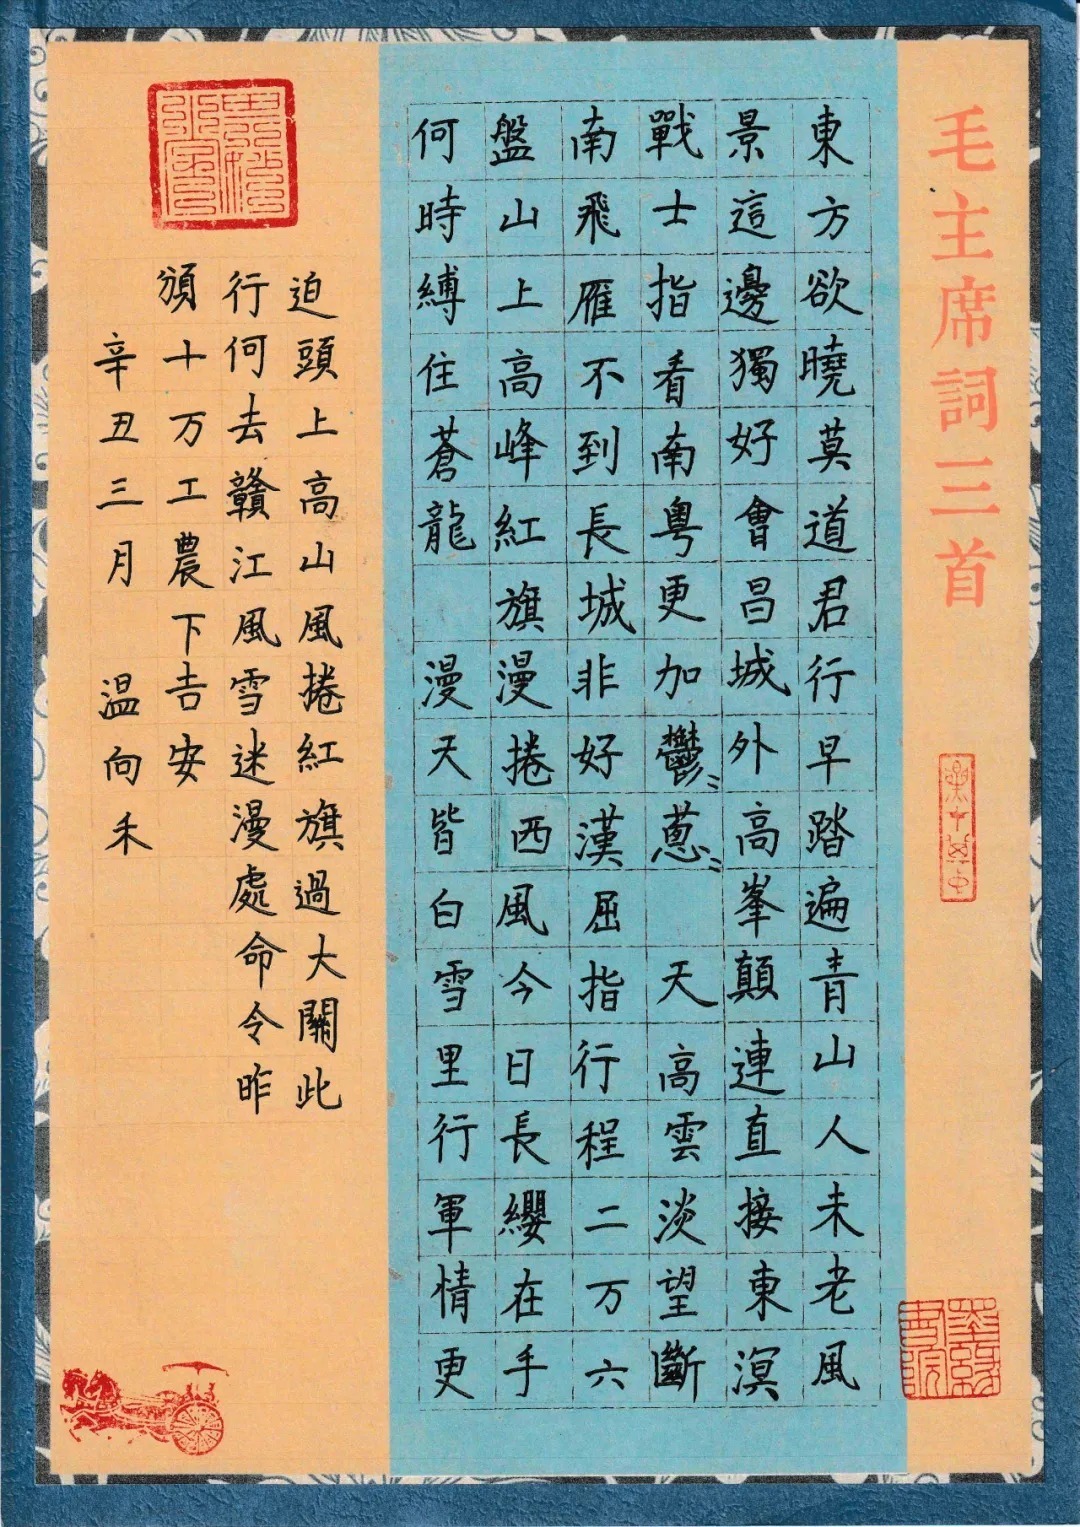 毛主席詞三首
東方欲曉莫道君行早踏遍青山人未老風
景這邊獨好會昌城外高峯顛連直接東溟
戰士指看南粵更加鬱〻蔥〻天高雲淡望斷
南飛雁不到長城非好漢屈指行程二万六
盤山上高峰紅旗漫捲西風今日長纓在手
何時縛住蒼龍漫天皆白雪里行軍情更
迫頭上高山風捲紅旗過大關此
行何去贛江風雪迷漫處命令昨
頒十万工農下吉安
辛丑三月溫向禾